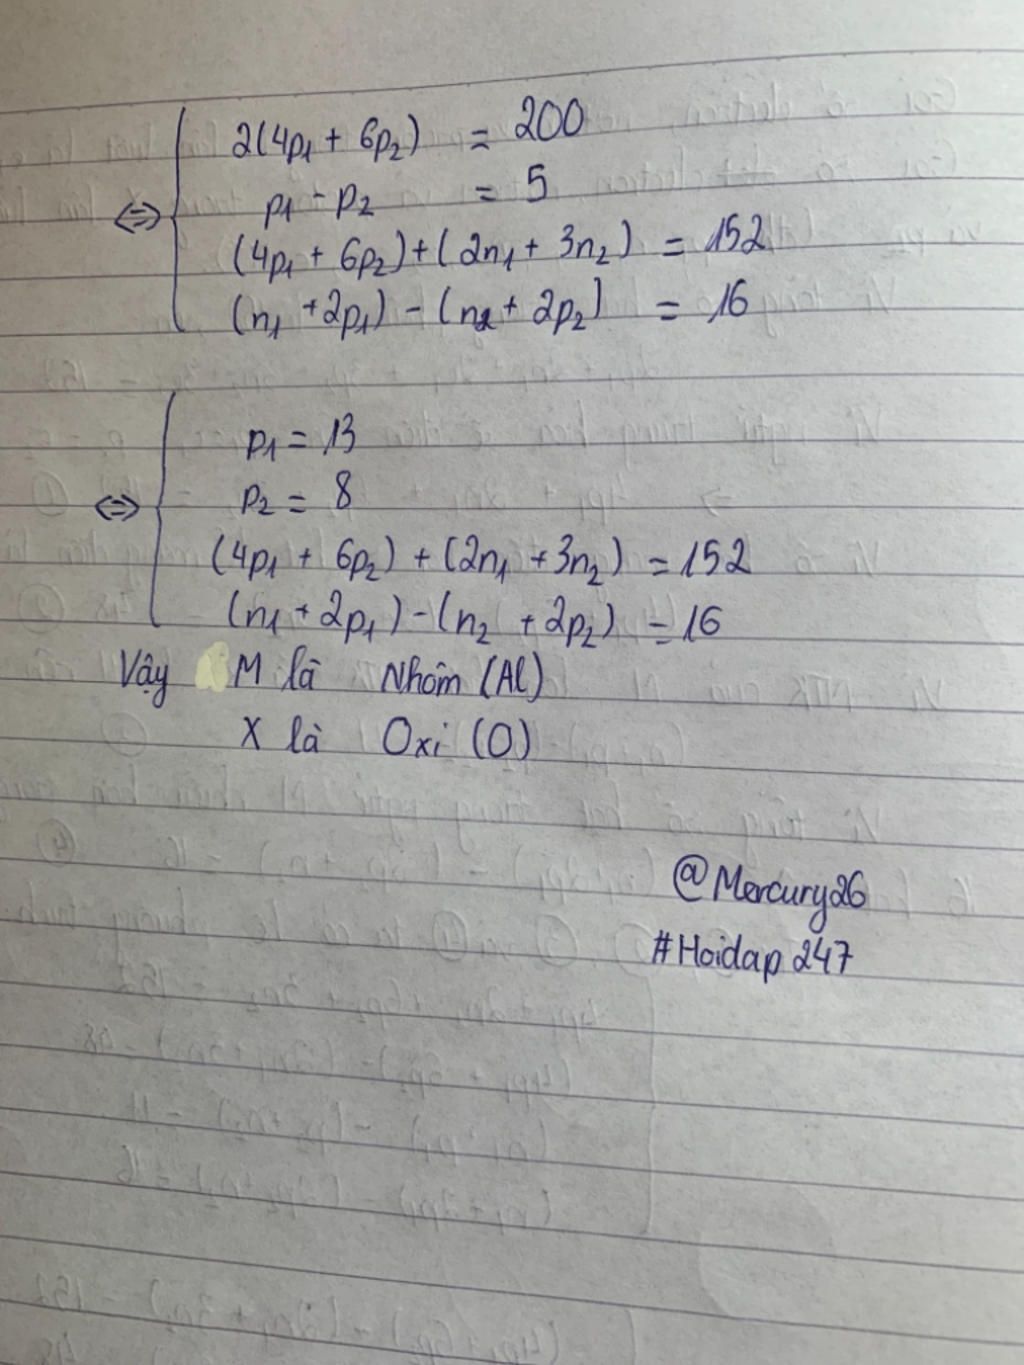 2(4p₁ + 6p₂) = 200
⇔ p₁ - p₂ = 5
(4p₁ + 6p₂) + (2n₁ + 3n₂) = 152
(n₁ + 2p₁) - (n₂ + 2p₂) = 16
p₁ = 13
⇔ p₂ = 8
(4p₁ + 6p₂) + (2n₁ + 3n₂) = 152
(n₁ + 2p₁) - (n₂ + 2p₂) = 16
Vậy M là Nhôm (Al)
X là Oxi (O)
@Mercury26
#Hoidap 247